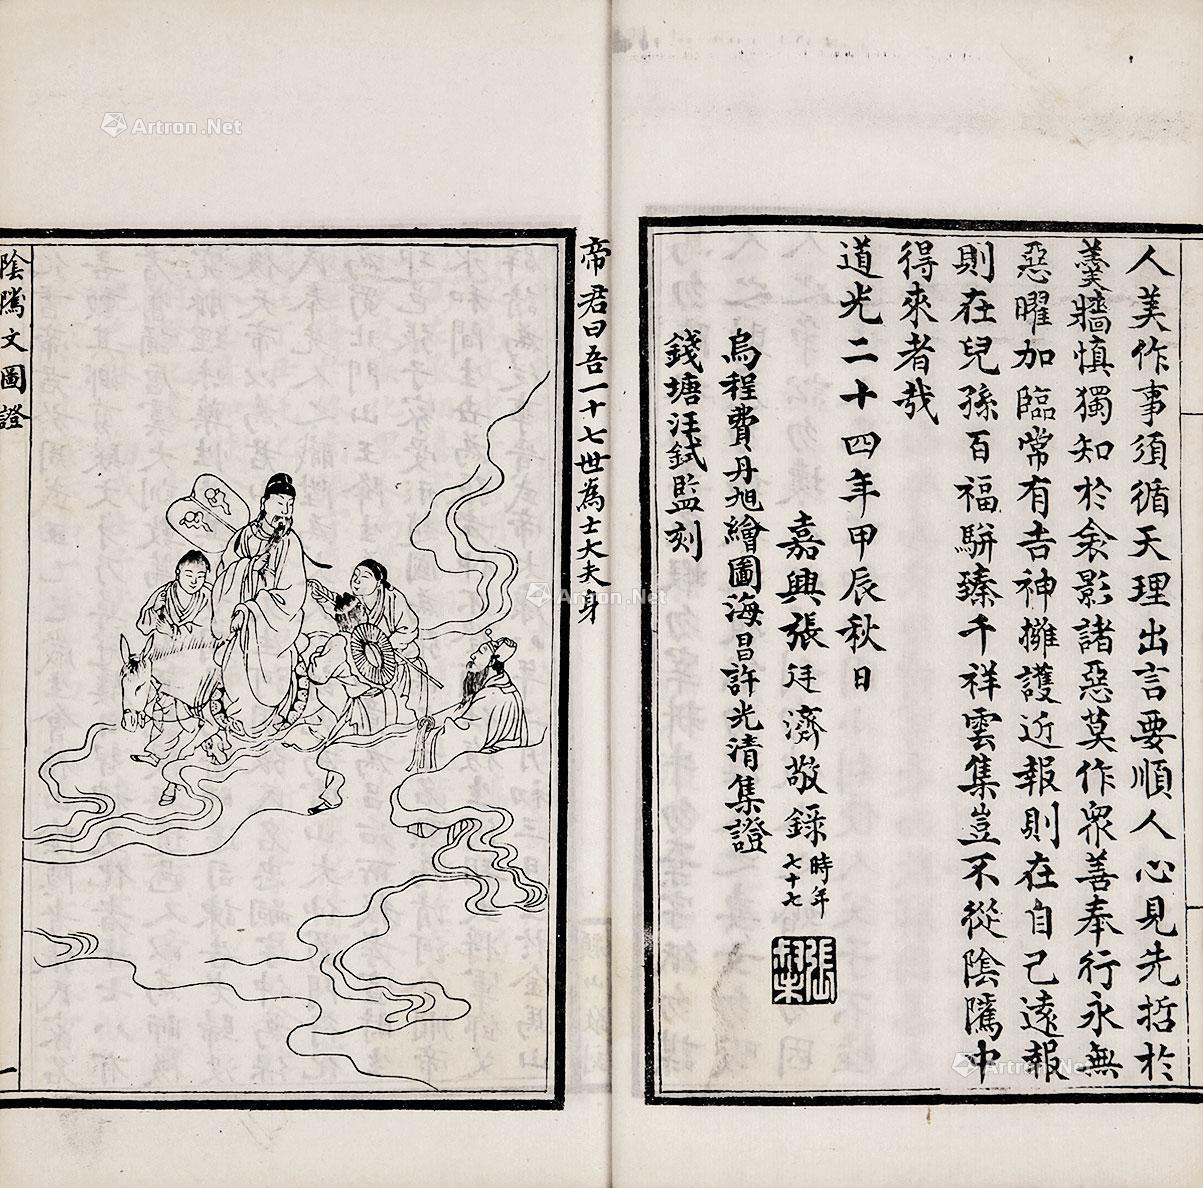 人美作事須循天理出言要順人心見先哲於
羹牆慎獨知於衾影諸惡莫作衆善奉行永無
惡曜加臨常有吉神擁護近報則在自己遠報
則在兒孫百福駢臻千祥雲集豈不從陰騭中
得來者哉
道光二十四年甲辰秋日
嘉興張廷濟敬錄時年七十七
烏程費丹旭繪圖海昌許光清集證
錢塘汪鉽監刻
帝君曰吾一十七世為士大夫身
陰騭文圖證
一
Artron.Net
Artron.Net
Artron.Net